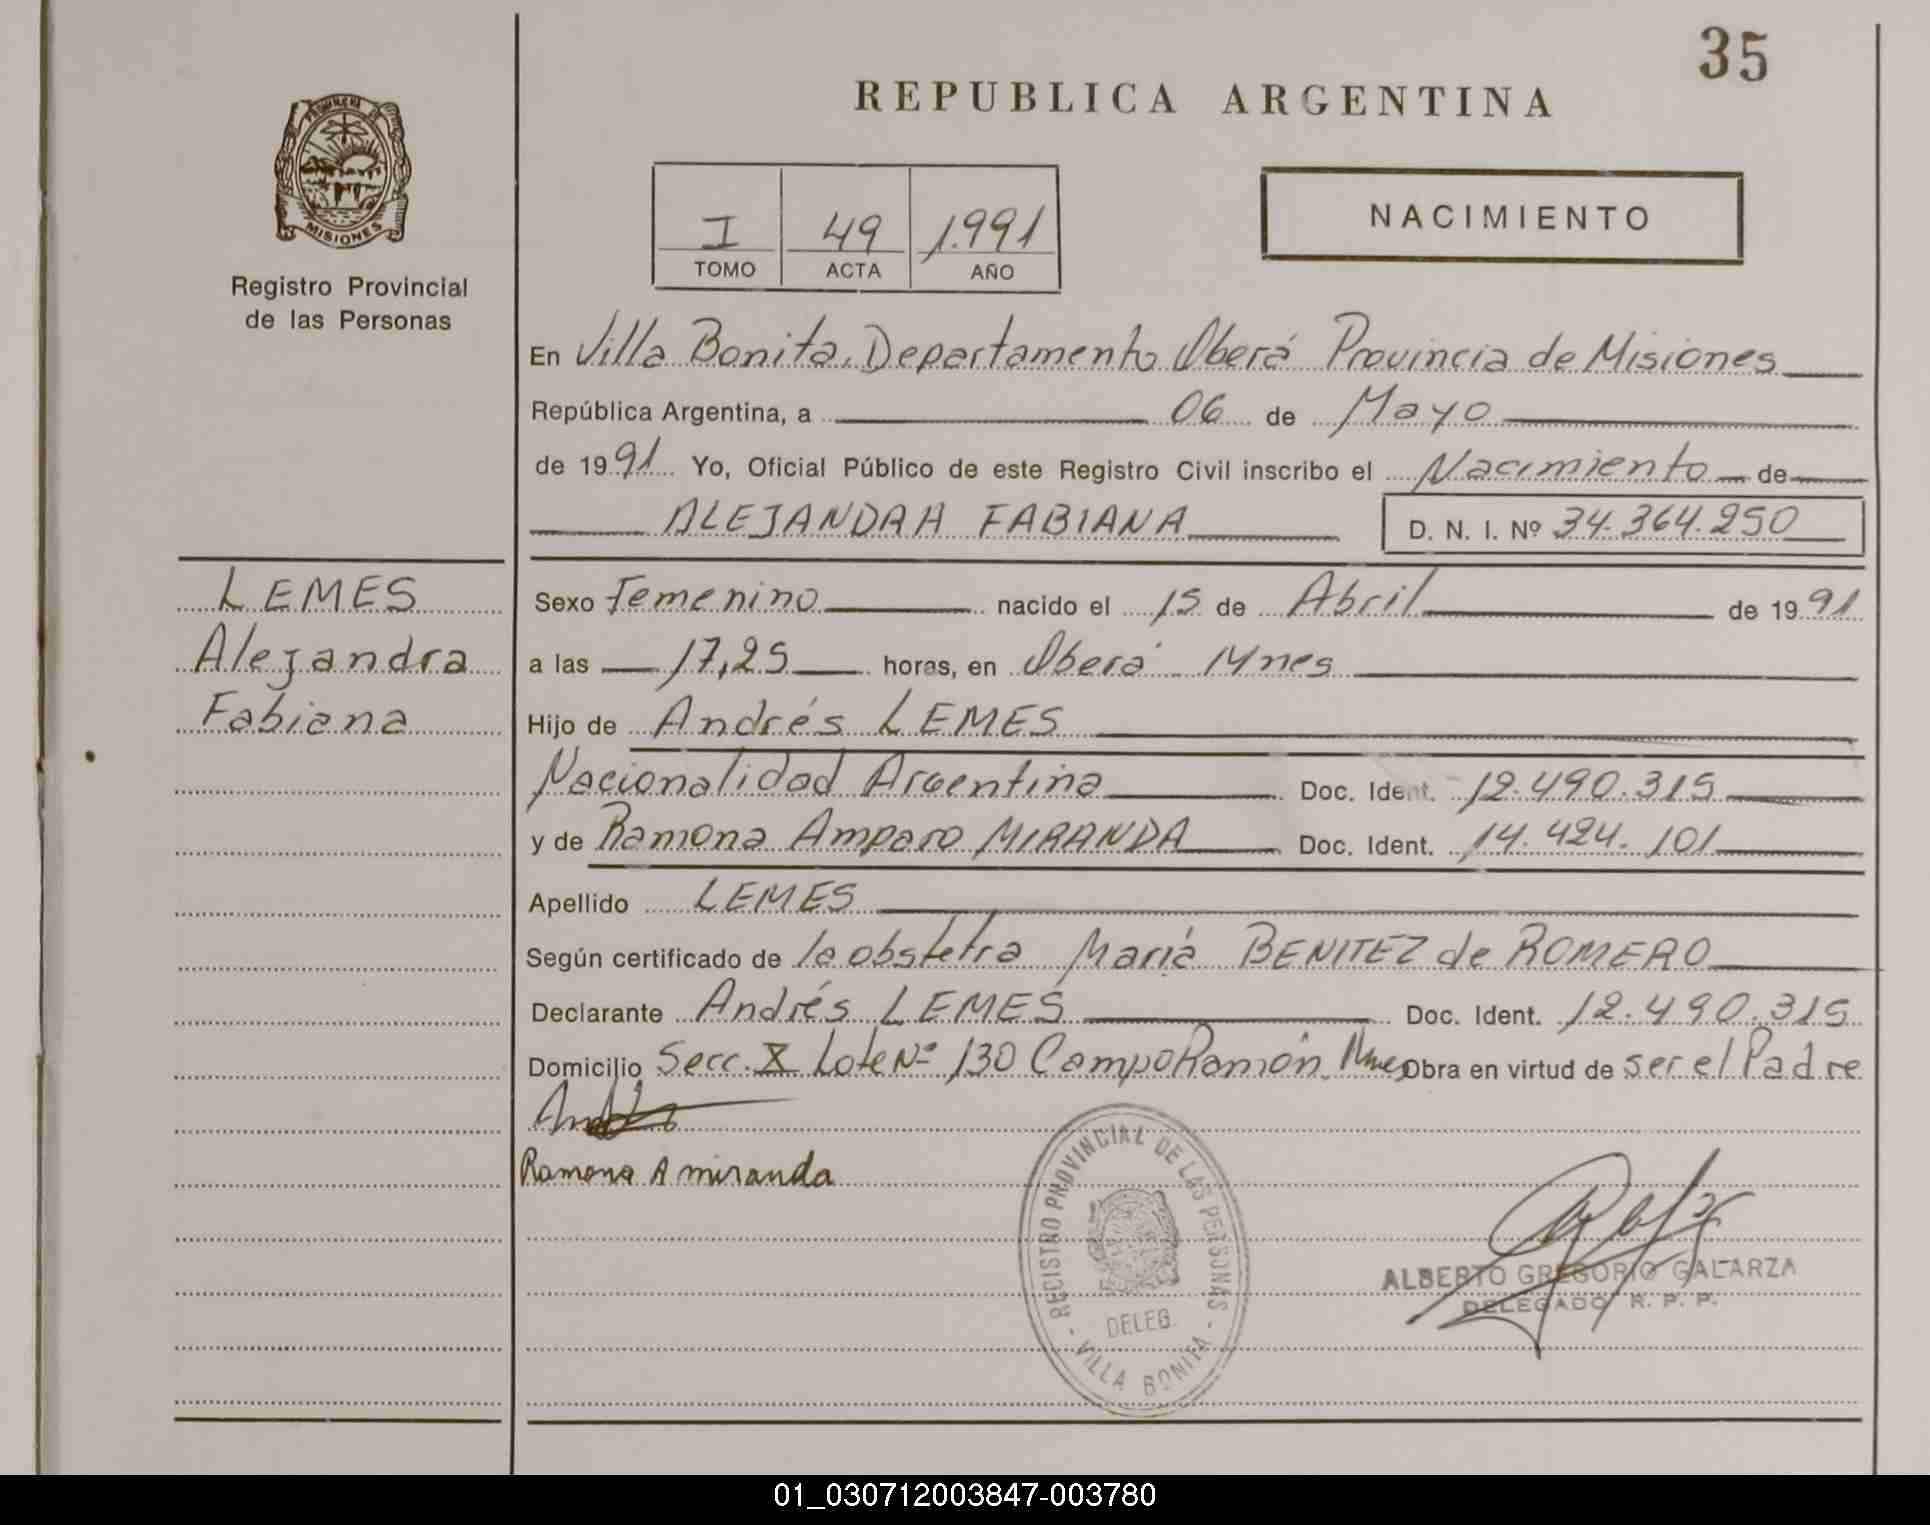 35
REPUBLICA ARGENTINA
PROVINCIA DE
MISIONES
Registro Provincial
de las Personas
I 49 1.991
TOMO ACTA AÑO
NACIMIENTO
En Villa Bonita, Departamento Oberá Provincia de Misiones
República Argentina, a 06 de Mayo
de 1991 Yo, Oficial Público de este Registro Civil inscribo el Nacimiento de
ALEJANDRA FABIANA D. N. I. Nº 34.364.250
LEMES
Alejandra
Fabiana
Sexo Femenino nacido el 15 de Abril de 1991
a las 17,25 horas, en Oberá Mnes
Hijo de Andrés LEMES
Nacionalidad Argentina Doc. Ident. 12.490.315
y de Ramona Amparo MIRANDA Doc. Ident. 14.424.101
Apellido LEMES
Según certificado de la obstetra María BENITEZ de ROMERO
Declarante Andrés LEMES Doc. Ident. 12.490.315
Domicilio Secc. X Lote Nº 130 Campo Ramón Mnes Obra en virtud de ser el Padre
Ramona A miranda
REGISTRO PROVINCIAL DE LAS PERSONAS
DELEG.
- VILLA BONITA -
ALBERTO GREGORIO GALARZA
DELEGADO R. P. P.
01_030712003847-003780